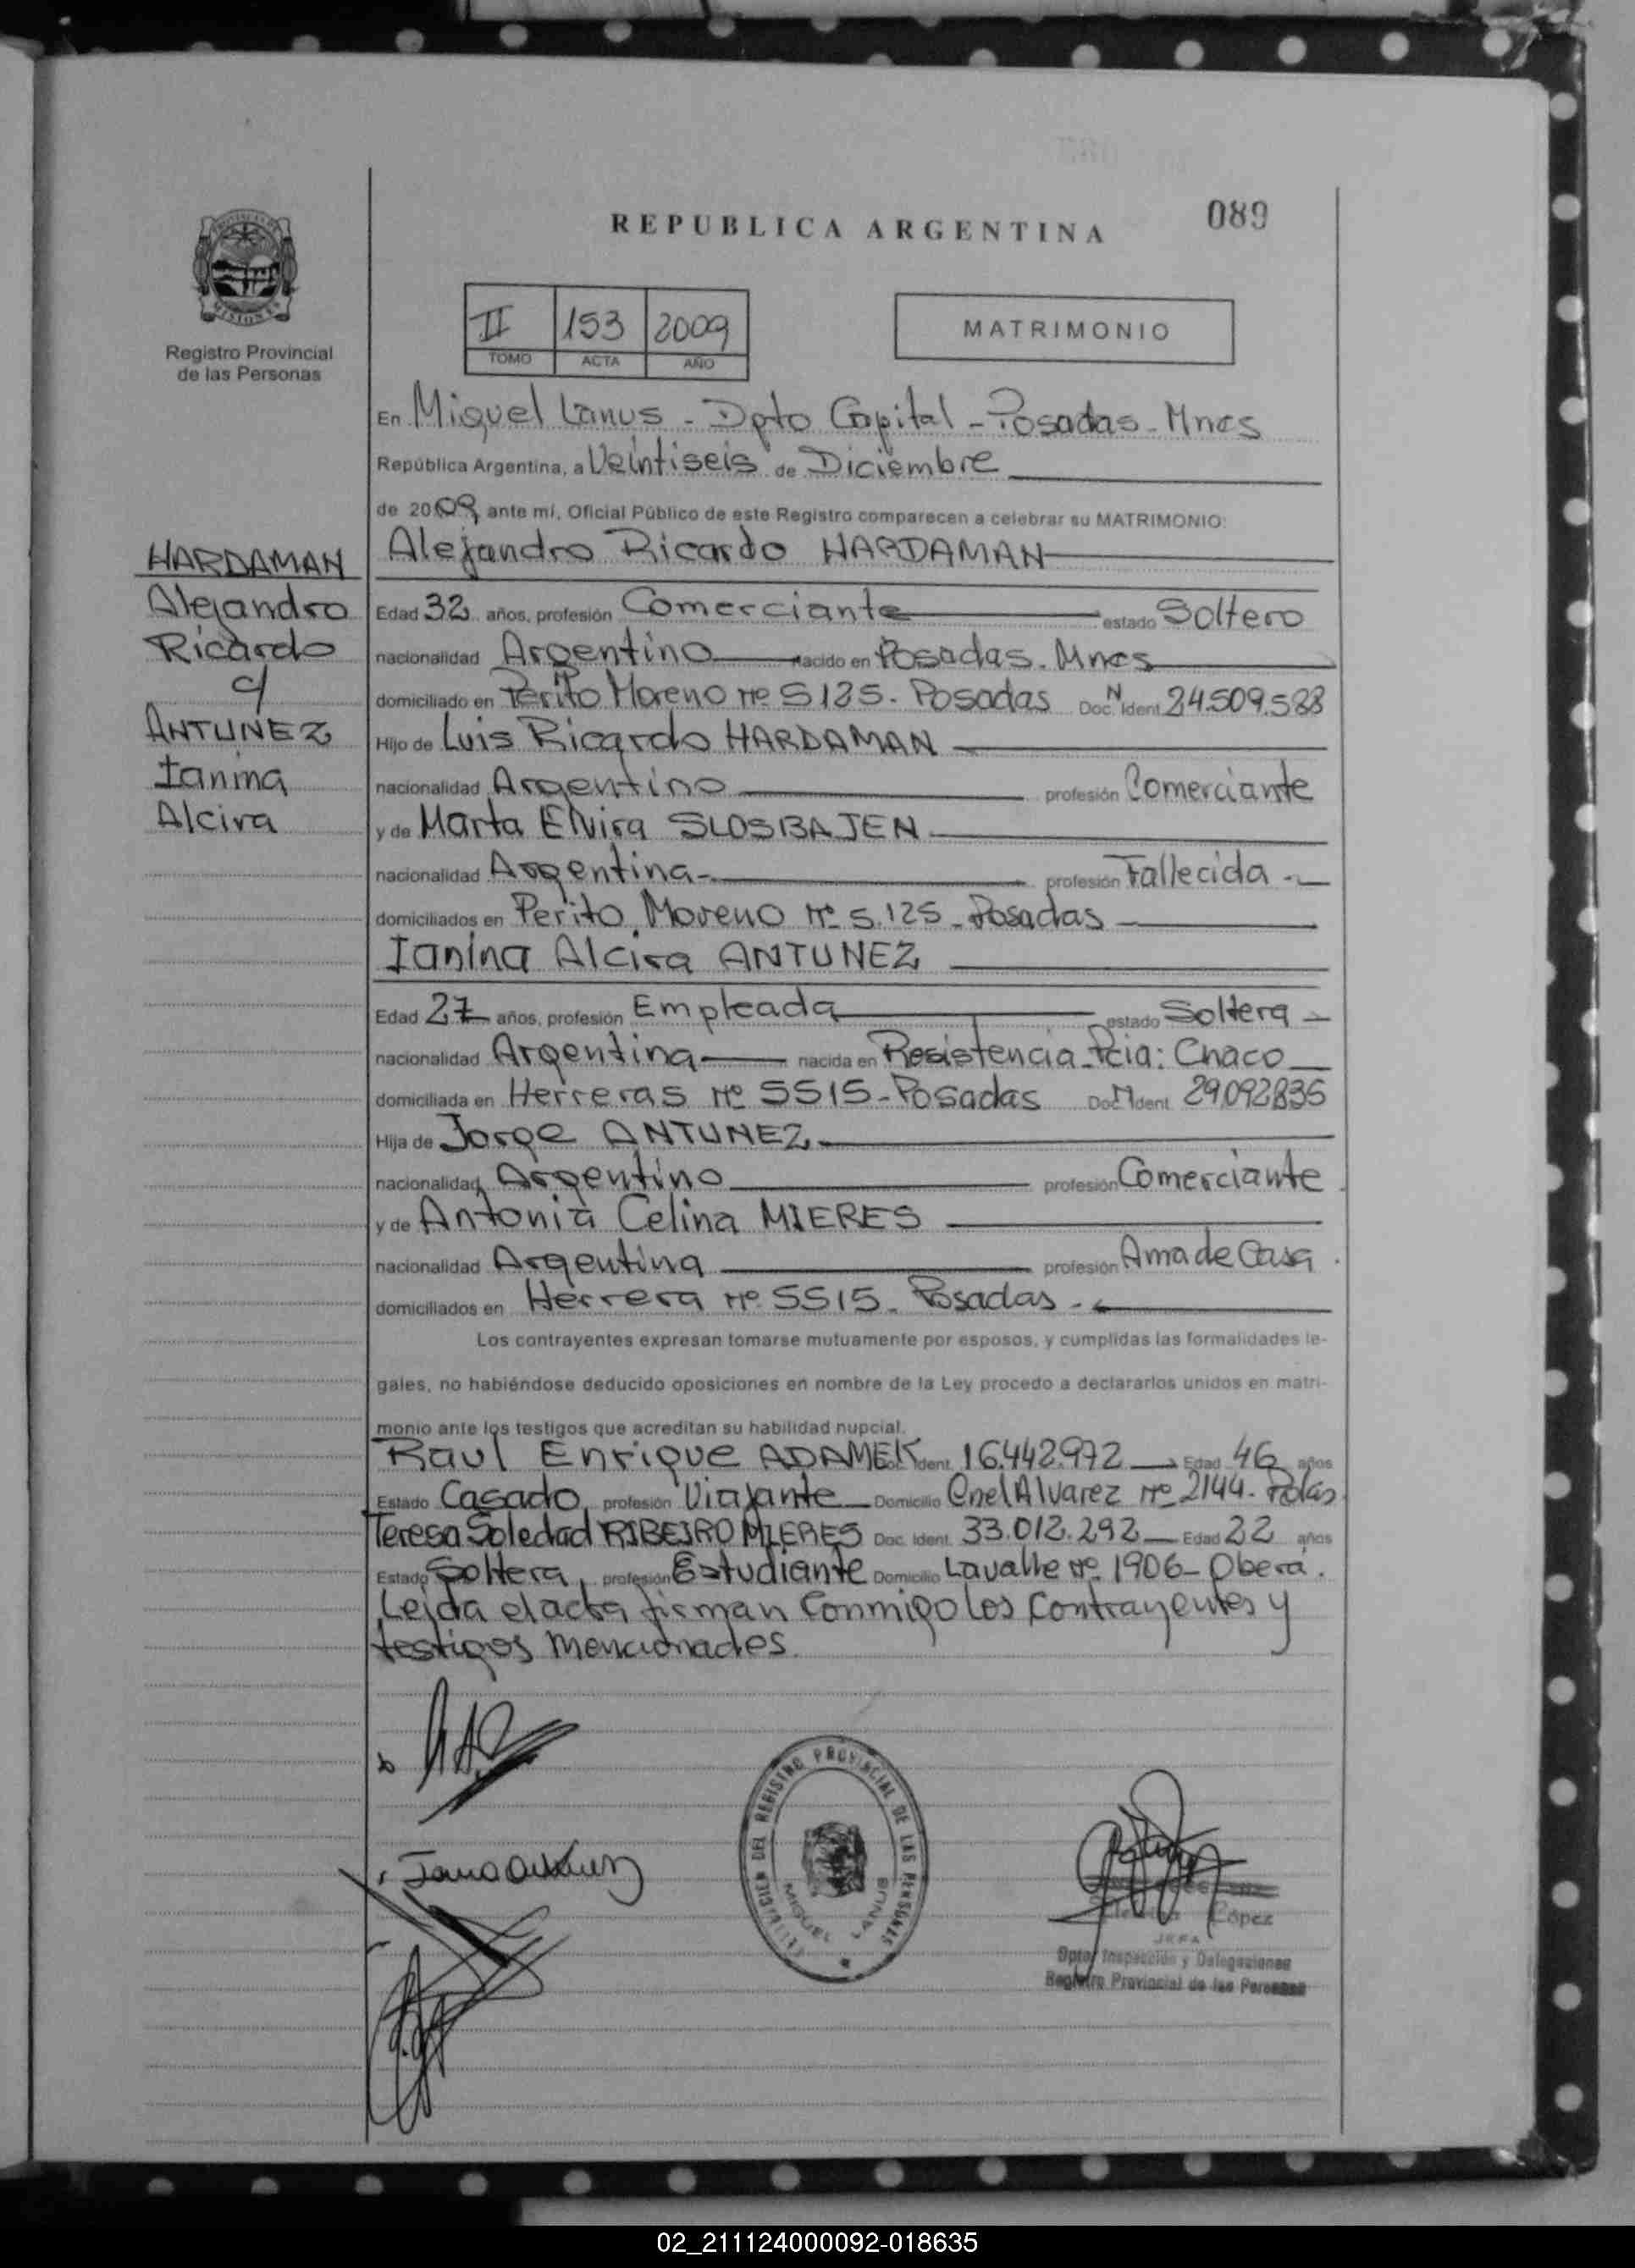 089
REPUBLICA ARGENTINA
MISIONES
Registro Provincial
de las Personas
II 153 2009
TOMO ACTA AÑO
MATRIMONIO
En Miguel Lanus - Dpto Capital - Posadas - Mnes
República Argentina, a Veintiseis de Diciembre
de 2009, ante mí, Oficial Público de este Registro comparecen a celebrar su MATRIMONIO:
HARDAMAN
Alejandro
Ricardo
c/
ANTUNEZ
Ianina
Alcira
Alejandro Ricardo HARDAMAN
Edad 32 años, profesión Comerciante estado Soltero
nacionalidad Argentino nacido en Posadas. Mnes
domiciliado en Perito Moreno Nº 5125. Posadas Doc. N Ident 24.509.588
Hijo de Luis Ricardo HARDAMAN
nacionalidad Argentino profesión Comerciante
y de Marta Elvira SLOSBAJEN
nacionalidad Argentina profesión Fallecida
domiciliados en Perito Moreno Nº 5.125 - Posadas
Ianina Alcira ANTUNEZ
Edad 27 años, profesión Empleada estado Soltera
nacionalidad Argentina nacida en Resistencia - Pcia: Chaco
domiciliada en Herreras Nº 5515 - Posadas Doc N Ident 29.092.835
Hija de Jorge ANTUNEZ
nacionalidad Argentino profesión Comerciante
y de Antonia Celina MIERES
nacionalidad Argentina profesión Ama de Casa
domiciliados en Herrera Nº 5515. Posadas
Los contrayentes expresan tomarse mutuamente por esposos, y cumplidas las formalidades le-
gales, no habiéndose deducido oposiciones en nombre de la Ley procedo a declararlos unidos en matri-
monio ante los testigos que acreditan su habilidad nupcial.
Raul Enrique ADAMEK Ident. 16.442.972 Edad 46 años
Estado Casado, profesión Viajante Domicilio Cnel Alvarez Nº 2144. Pdas.
Teresa Soledad RIBEIRO MIERES Doc. Ident. 33.012.292 Edad 22 años
Estado Soltera, profesión Estudiante Domicilio Lavalle Nº 1906 - Oberá.
Leida el acta firman Conmigo los Contrayentes y
testigos mencionados.
DEL REGISTRO PROVINCIAL DE LAS PERSONAS
MIGUEL LANUS
López
JEFA
Dpto. Inspección y Delegaciones
Registro Provincial de las Personas
02_211124000092-018635